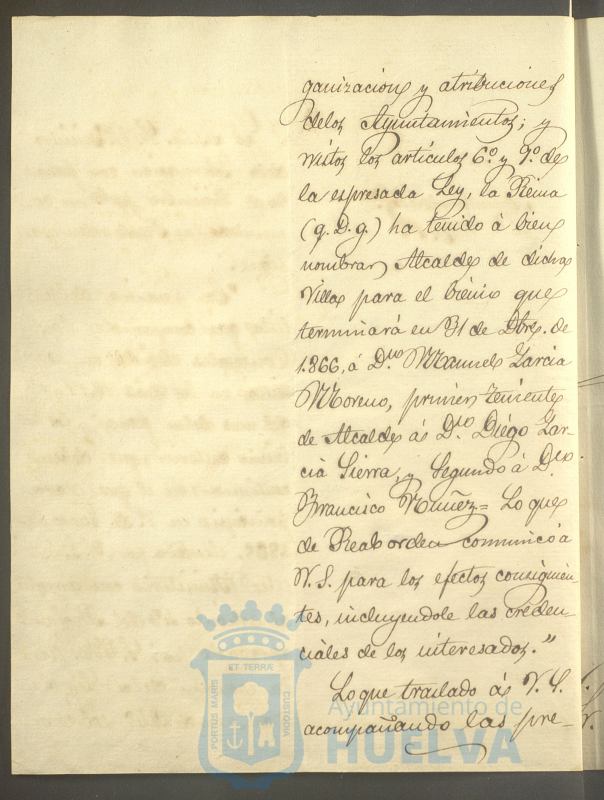 ganizacion y atribuciones
delos Ayuntamientos; y
vistos los artículos 6.º y 9.º de
la espresada Ley, la Reina
(q. D. g.) ha tenido á bien
nombrar Alcalde de dicha
Villa para el bienio que
terminará en 31 de Dbre. de
1.866, á D.n Manuel Garcia
Moreno, primer teniente
de Alcalde á D.n Diego Gar-
cia Sierra, y Segundo á D.n
Francisco Nuñez = Lo que
de Real orden comunico á
V. S. para los efectos consiguien
tes, incluyendole las creden-
ciales de los interesados."
Lo que traslado á V. S.
acompañando las pre-
PORTUS MARIS
ET TERRÆ
CUSTODIA
Ayuntamiento de
HUELVA